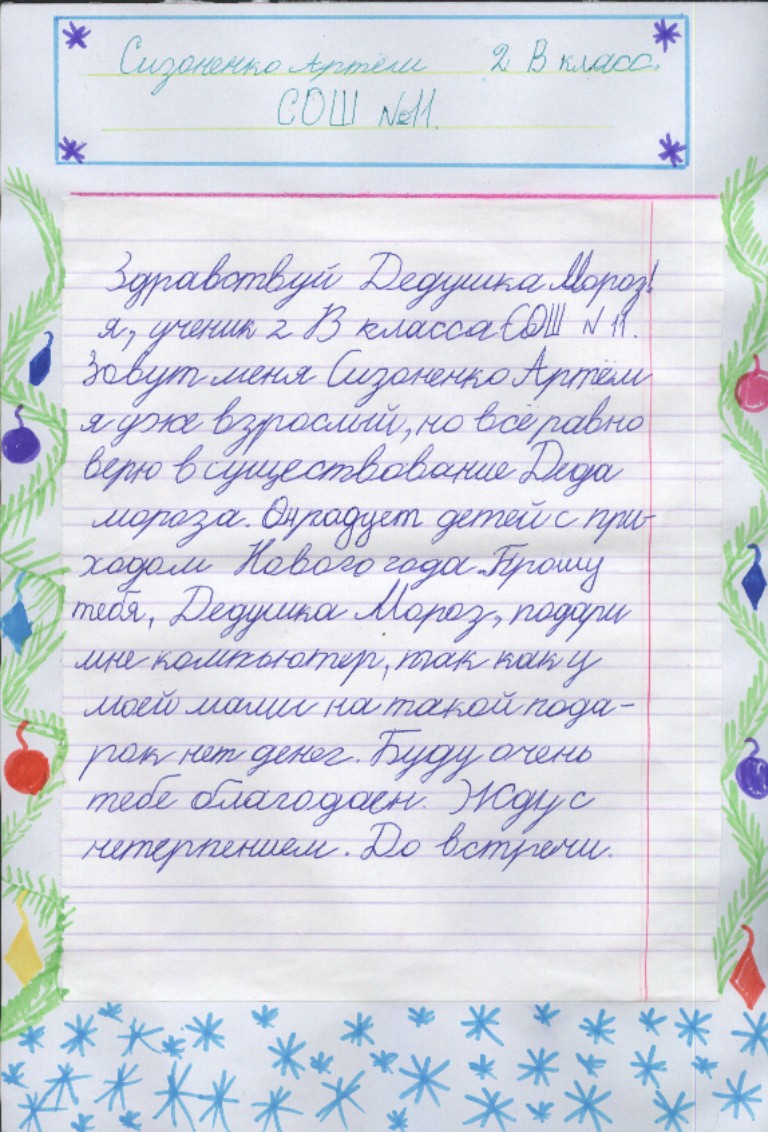 Сизоненко Артём 2 В класс.
СОШ №11.
Здравствуй Дедушка Мороз!
я, ученик 2 В класса СОШ N 11.
Зовут меня Сизоненко Артём
я уже взрослый, но всё равно
верю в существование Деда
мороза. Он радует детей с при-
ходом Нового года. Прошу
тебя, Дедушка Мороз, подари
мне компьютер, так как у
моей мамы на такой пода-
рок нет денег. Буду очень
тебе благодаен. Жду с
нетерпением. До встречи.